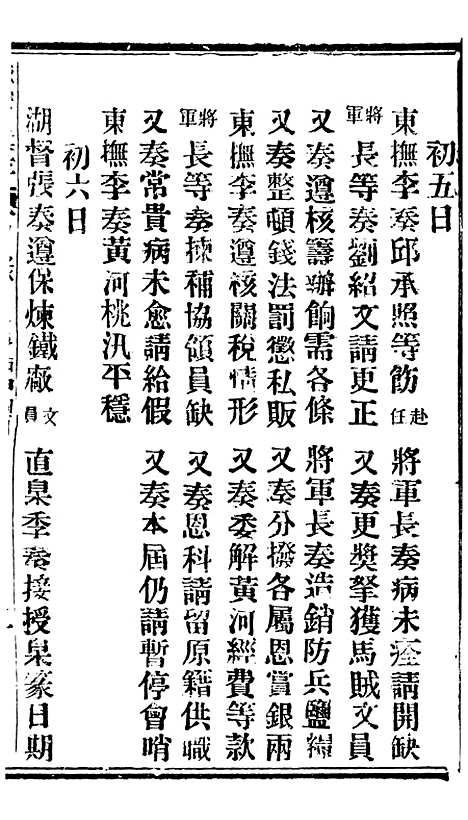 初五日
東撫李奏邱承照等飭赴任　將軍長奏病未痊請開缺
將軍長等奏劉紹文請更正　又奏更獎拏獲馬賊文員
又奏遵核籌辦餉需各條　將軍長奏造銷防兵鹽糧
又奏整頓錢法罰懲私販　又奏分撥各屬恩賞銀兩
東撫李奏遵核關稅情形　又奏委解黃河經費等款
將軍長等奏揀補協領員缺　又奏恩科請留原籍供職
又奏常貴病未愈請給假　又奏本屆仍請暫停會哨
東撫李奏黃河桃汛平穩
初六日
湖督張奏遵保煉鐵廠文員　直臬季奏接授臬篆日期